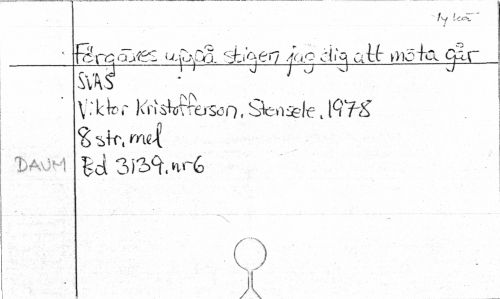 Tykä
Förgäves uppå stigen jag dig att möta går
SVAS
Viktor Kristofferson, Stensele, 1978
8 str, mel
DAUM Bd 3139, nr 6